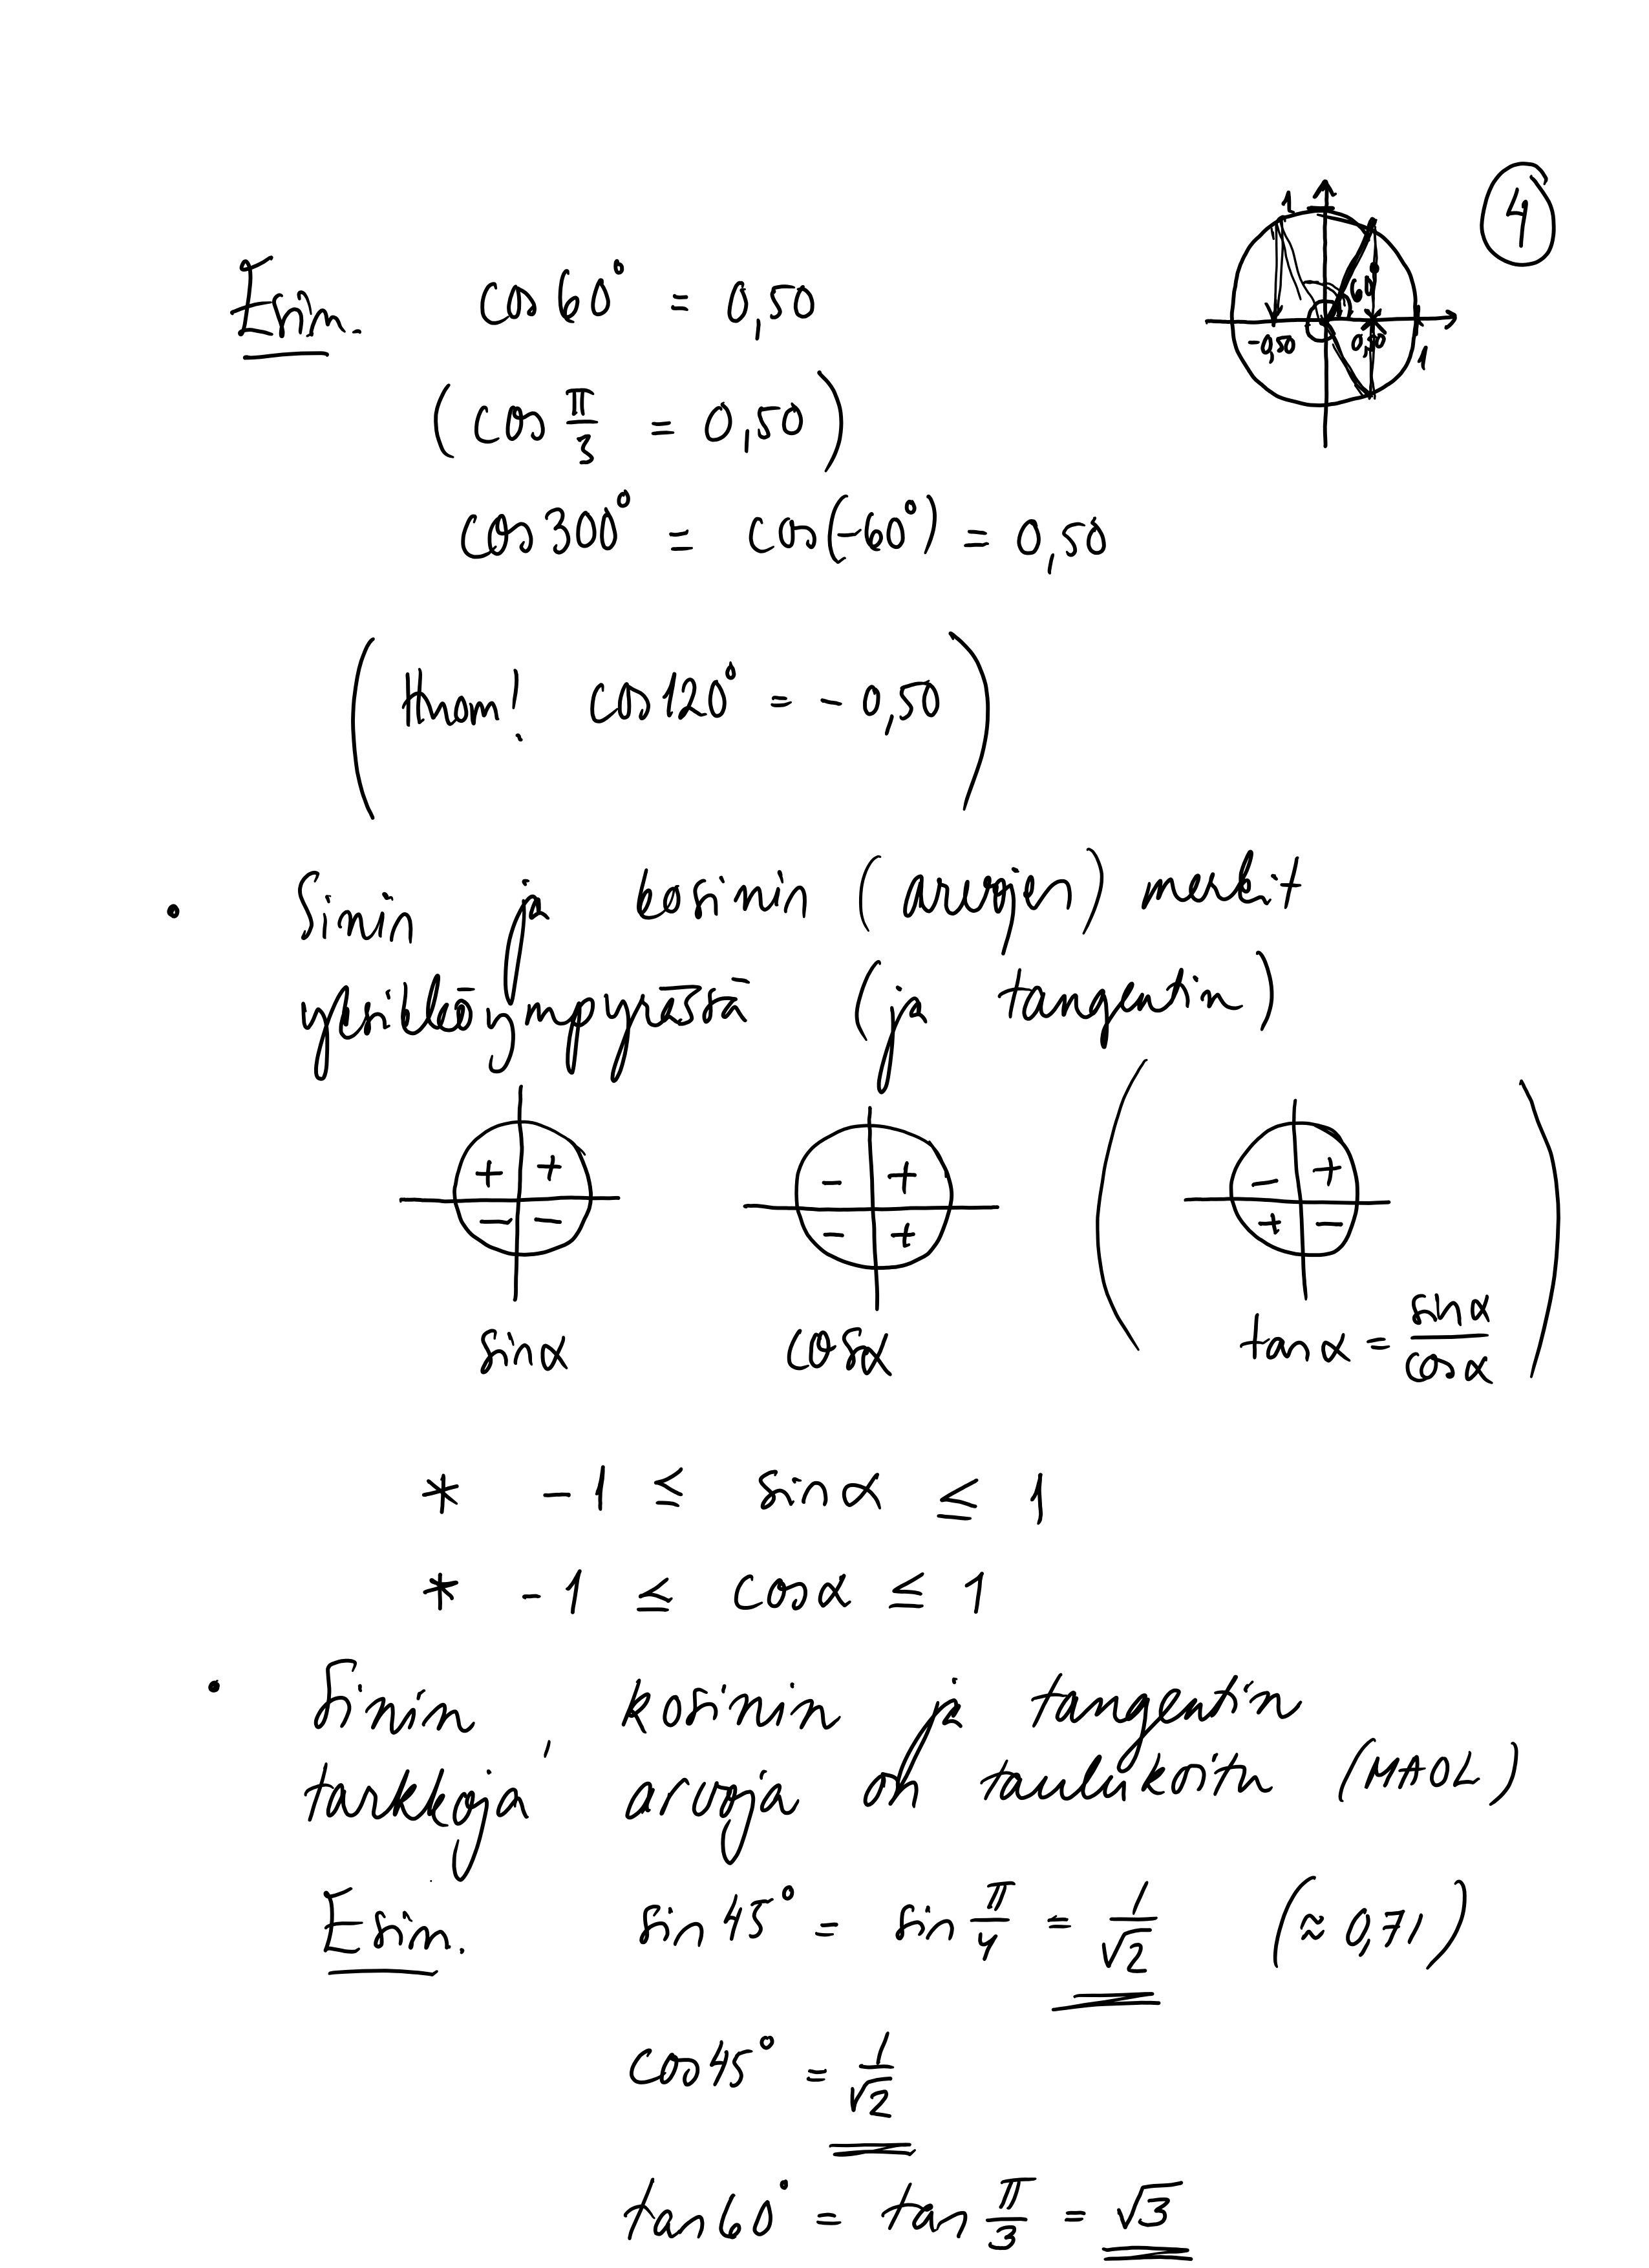 4
1
60°
-0,50
0,50
1
Esim. cos60° = 0,50
(cos π/3 = 0,50)
cos300° = cos(-60°) = 0,50
(Huom! cos120° = -0,50)
• Sinin ja kosinin (arvojen) merkit
yksikköympyrässä (ja tangentin)
+ +
- -
- +
- +
- +
+ -
sinα
cosα
(tanα = sinα/cosα)
* -1 ≤ sinα ≤ 1
* -1 ≤ cosα ≤ 1
• Sinin, kosinin ja tangentin
tarkkoja arvoja on taulukoitu (MAOL)
Esim. sin45° = sin π/4 = 1/√2 (≈ 0,71)
cos45° = 1/√2
tan60° = tan π/3 = √3